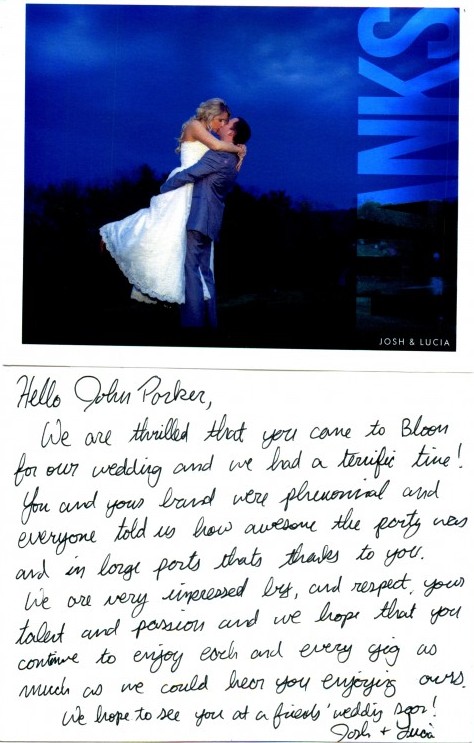 THANKS
JOSH & LUCIA
Hello John Parker,
We are thrilled that you came to Bloom
for our wedding and we had a terrific time!
You and your band were phenominal and
everyone told us how awesome the party was
and in large parts thats thanks to you.
We are very impressed by, and respect, your
talent and passion and we hope that you
continue to enjoy each and every gig as
much as we could hear you enjoying ours.
We hope to see you at a friends' wedding soon!
Josh + Lucia